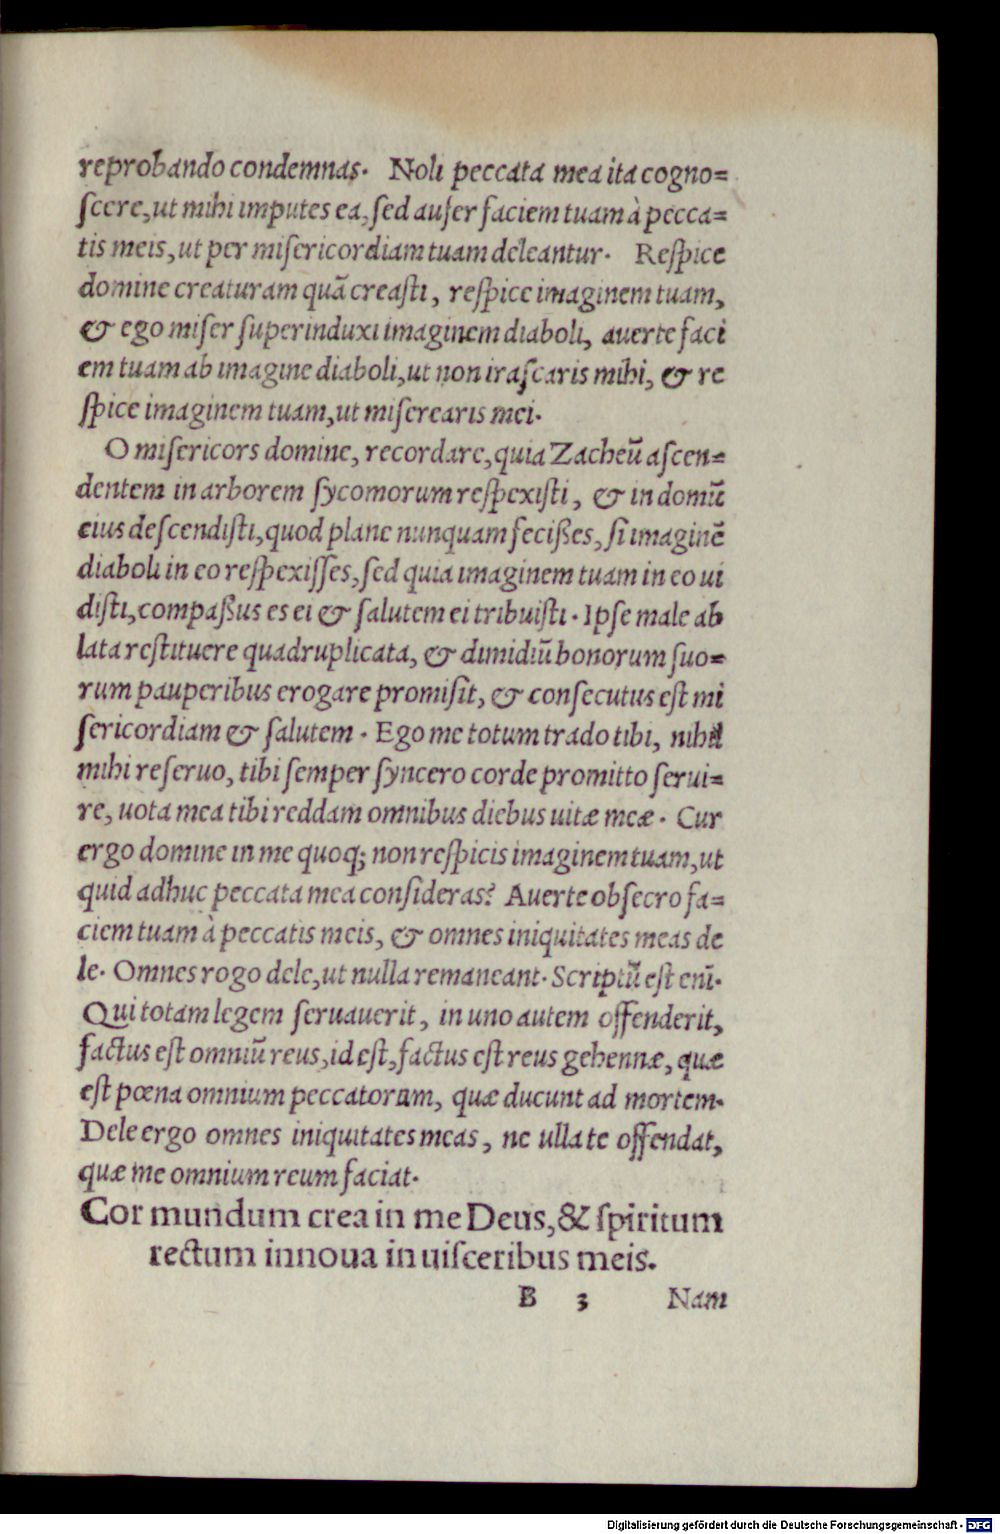 reprobando condemnas. Noli peccata mea ita cogno=
ſcere, ut mihi imputes ea, ſed aufer faciem tuam à pecca=
tis meis, ut per miſericordiam tuam deleantur. Reſpice
domine creaturam quã creaſti, reſpice imaginem tuam,
& ego miſer ſuperinduxi imaginem diaboli, auerte faci
em tuam ab imagine diaboli, ut non iraſcaris mihi, & re
ſpice imaginem tuam, ut miſerearis mei.
O miſericors domine, recordare, quia Zacheũ aſcen=
dentem in arborem ſycomorum reſpexiſti, & in domũ
eius deſcendiſti, quod plane nunquam fecißes, ſi imaginẽ
diaboli in eo reſpexiſſes, ſed quia imaginem tuam in eo ui
diſti, compaßus es ei & ſalutem ei tribuiſti. Ipſe male ab
lata reſtituere quadruplicata, & dimidiũ bonorum ſuo=
rum pauperibus erogare promiſit, & conſecutus eſt mi
ſericordiam & ſalutem. Ego me totum trado tibi, nihil
mihi reſeruo, tibi ſemper ſyncero corde promitto ſerui=
re, uota mea tibi reddam omnibus diebus uitæ meæ. Cur
ergo domine in me quoq; non reſpicis imaginem tuam, ut
quid adhuc peccata mea conſideras? Auerte obſecro fa=
ciem tuam à peccatis meis, & omnes iniquitates meas de
le. Omnes rogo dele, ut nulla remaneant. Scriptũ eſt enĩ.
Qui totam legem ſeruauerit, in uno autem offenderit,
factus eſt omniũ reus, id eſt, factus eſt reus gehennæ, quæ
eſt pœna omnium peccatorum, quæ ducunt ad mortem.
Dele ergo omnes iniquitates meas, ne ulla te offendat,
quæ me omnium reum faciat.
Cor mundum crea in me Deus, & ſpiritum
rectum innoua in uiſceribus meis.
B 3 Nam
Digitalisierung gefördert durch die Deutsche Forschungsgemeinschaft - DFG